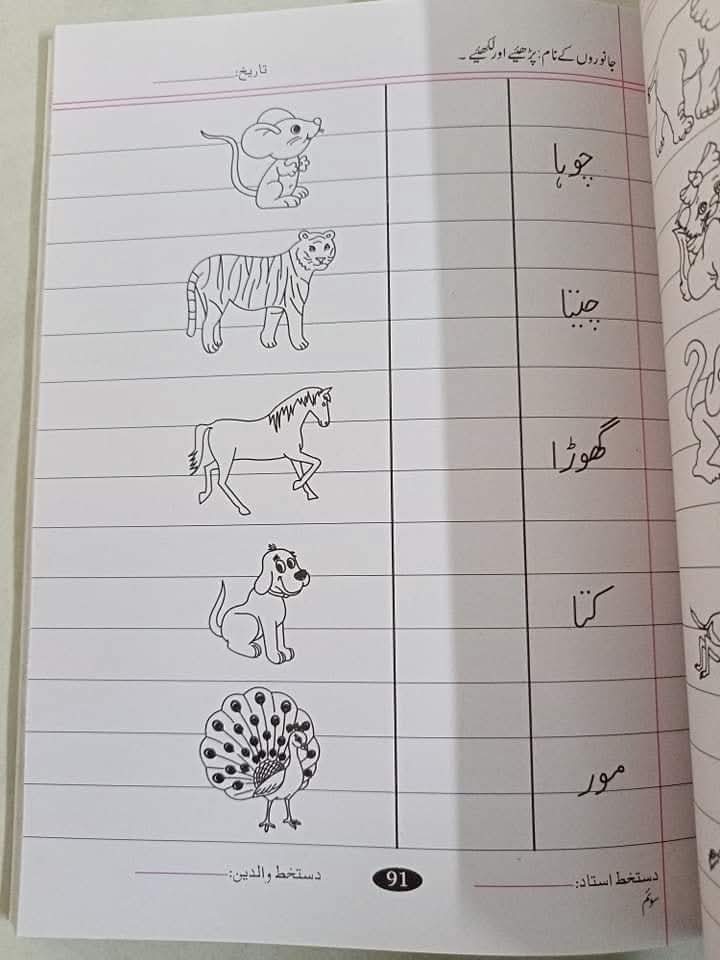 جانوروں کے نام: پڑھیئے اور لکھیئے۔
تاریخ:
چوہا
چیتا
گھوڑا
کتا
مور
دستخط استاد:
دستخط والدین:
91
سوئم